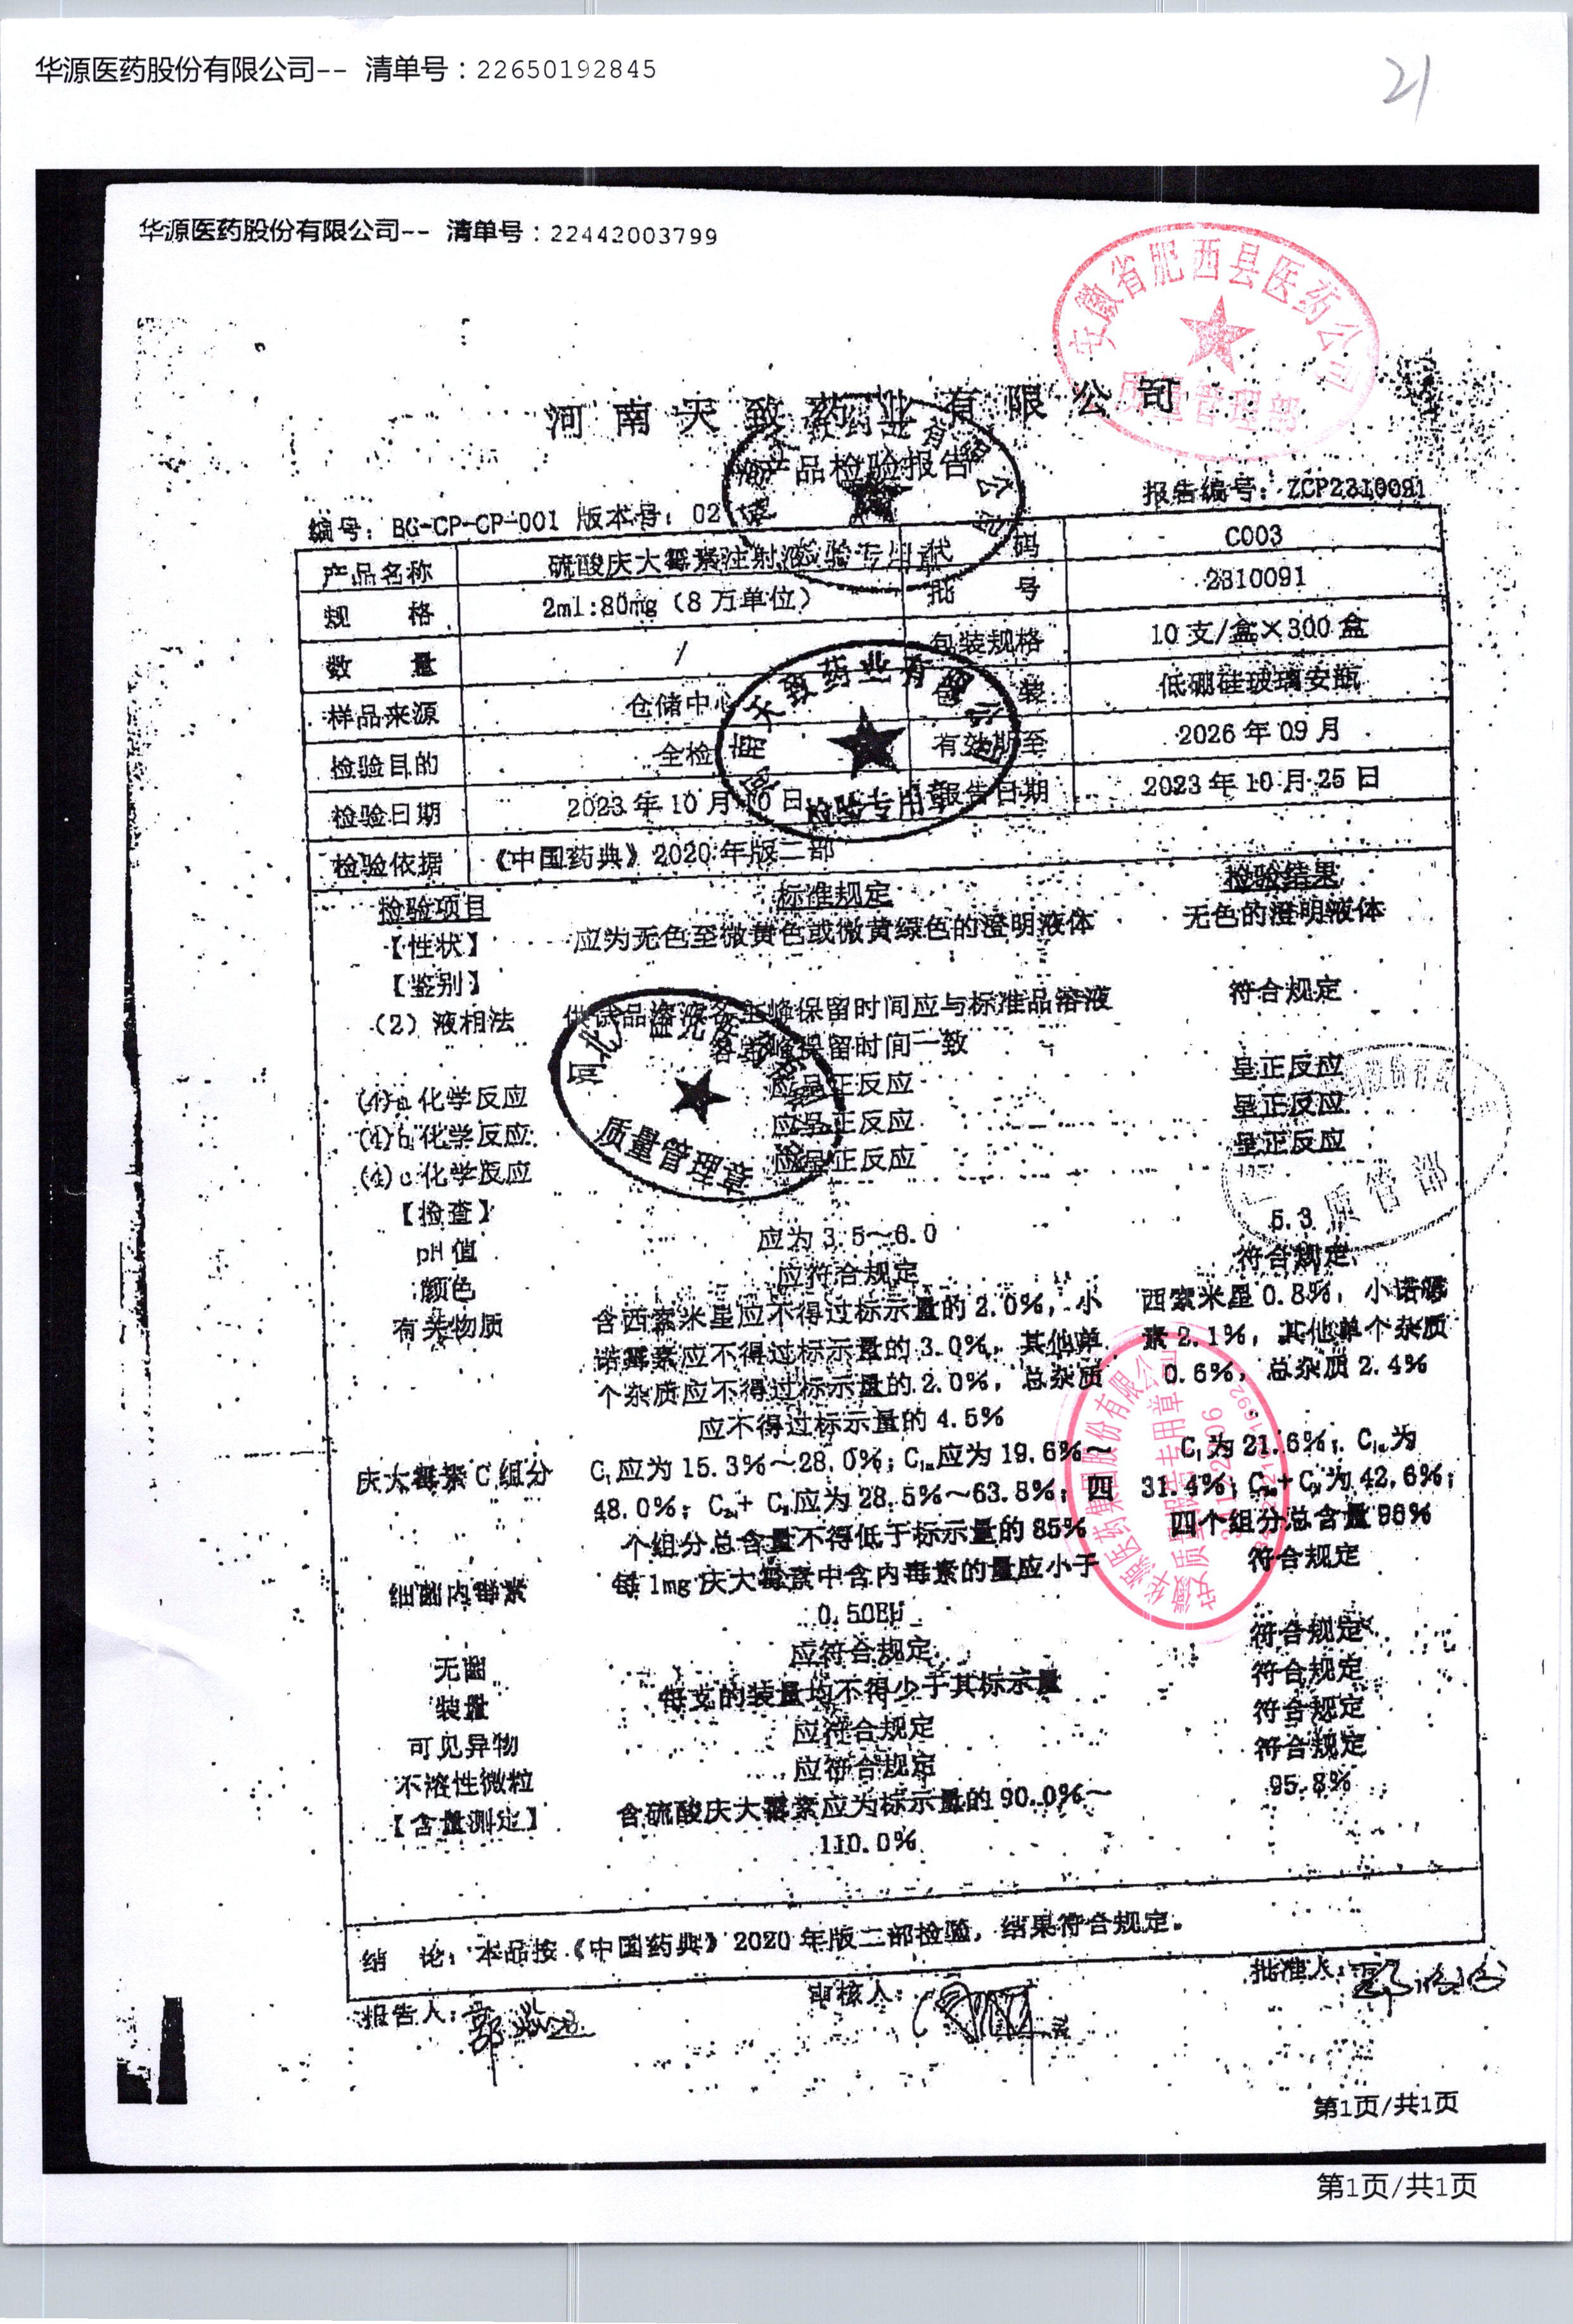 华源医药股份有限公司-- 清单号：22650192845
21
华源医药股份有限公司-- 清单号：22442003799
安徽省肥西县医药公司
质量管理部
河南天致药业有限公司
产品检验报告
编号：BG-CP-CP-001 版本号：02
报告编号：ZCP2310091
产品名称 硫酸庆大霉素注射液 代码 C003
规格 2ml:80mg（8万单位） 批号 2310091
数量 / 包装规格 10支/盒×300盒
样品来源 仓储中心 包装 低硼硅玻璃安瓿
检验目的 全检 有效期至 2026年09月
检验日期 2023年10月10日 报告日期 2023年10月25日
检验依据 《中国药典》2020年版二部
检验项目 标准规定 检验结果
【性状】 应为无色至微黄色或微黄绿色的澄明液体 无色的澄明液体
【鉴别】
（2）液相法 供试品溶液各主峰保留时间应与标准品溶液 符合规定
各主峰保留时间一致
(4)a 化学反应 应呈正反应 呈正反应
(4)b 化学反应 应呈正反应 呈正反应
(4)c 化学反应 应呈正反应 呈正反应
【检查】
pH值 应为3.5～6.0 5.3
颜色 应符合规定 符合规定
有关物质 含西索米星应不得过标示量的2.0%，小 西索米星0.8%，小诺霉
诺霉素应不得过标示量的3.0%，其他单 素2.1%，其他单个杂质
个杂质应不得过标示量的2.0%，总杂质 0.6%，总杂质2.4%
应不得过标示量的4.5%
庆大霉素C组分 C₁应为15.3%～28.0%；C₁ₐ应为19.6%～ C₁为21.6%；C₁ₐ为
48.0%；C₂ₐ+C₂应为28.5%～63.8%；四 31.4%；C₂ₐ+C₂为42.6%；
个组分总含量不得低于标示量的85% 四个组分总含量96%
细菌内毒素 每1mg庆大霉素中含内毒素的量应小于 符合规定
0.50EU
无菌 应符合规定 符合规定
装量 每支的装量均不得少于其标示量 符合规定
可见异物 应符合规定 符合规定
不溶性微粒 应符合规定 符合规定
【含量测定】 含硫酸庆大霉素应为标示量的90.0%～ 95.8%
110.0%
结论：本品按《中国药典》2020年版二部检验，结果符合规定。
报告人： 审核人： 批准人：
天致药业有限公司
检验专用章
质量管理章
质管部
华源医药集团股份有限公司
质量报告专用章
第1页/共1页
第1页/共1页